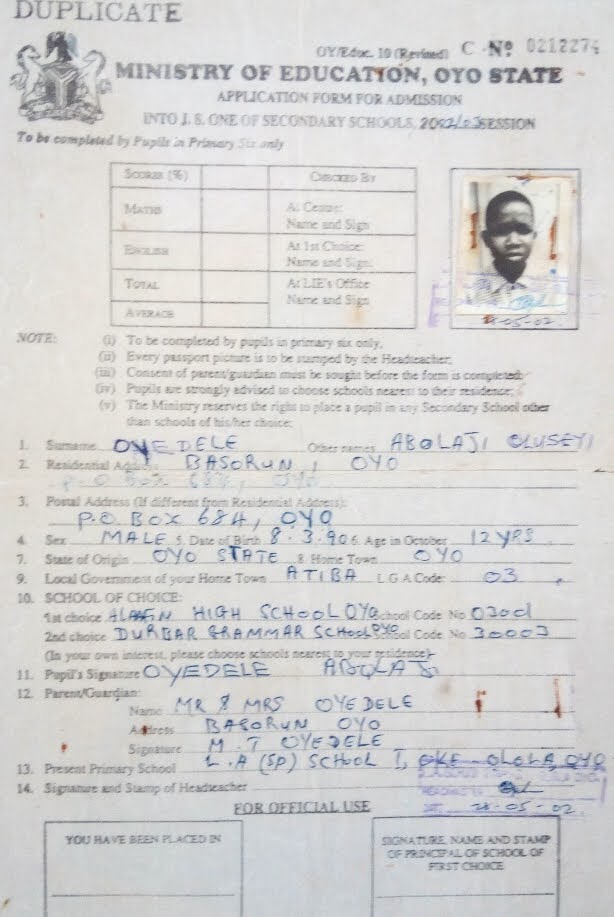 DUPLICATE
OY/Educ. 10 (Revised) C Nº 0212274
MINISTRY OF EDUCATION, OYO STATE
APPLICATION FORM FOR ADMISSION
INTO J. S. ONE OF SECONDARY SCHOOLS, 2002/03 SESSION
To be completed by Pupils in Primary Six only
SCORES (%) CHECKED BY
MATHS At Centre:
Name and Sign
ENGLISH At 1st Choice:
Name and Sign:
TOTAL At LIE's Office
Name and Sign
AVERAGE
-05-02
NOTE: (i) To be completed by pupils in primary six only,
(ii) Every passport picture is to be stamped by the Headteacher;
(iii) Consent of parent/guardian must be sought before the form is completed;
(iv) Pupils are strongly advised to choose schools nearest to their residence;
(v) The Ministry reserves the right to place a pupil in any Secondary School other
than schools of his/her choice;
1. Surname OYEDELE Other names ABOLAJI OLUSEYI
2. Residential Address BASORUN, OYO
P.O BOX 684, OYO
3. Postal Address (If different from Residential Address):
P.O. BOX 684, OYO
4. Sex MALE 5. Date of Birth 8.3.90 6. Age in October 12 YRS
7. State of Origin OYO STATE 8. Home Town OYO
9. Local Government of your Home Town ATIBA L.G.A Code: 03
10. SCHOOL OF CHOICE:
1st choice HIGH SCHOOL OYO School Code No
2nd choice DURBAR GRAMMAR SCHOOL OYO School Code No 30003
(In your own interest, please choose schools nearest to your residence)
11. Pupil's Signature OYEDELE ABOLAJI
12. Parent/Guardian:
Name MR & MRS OYEDELE
Address BASORUN OYO
Signature M. T OYEDELE
13. Present Primary School L.A (SP) SCHOOL I, OKE-OLOLA, OYO
14. Signature and Stamp of Headteacher
-05-02
FOR OFFICIAL USE
YOU HAVE BEEN PLACED IN
SIGNATURE, NAME AND STAMP
OF PRINCIPAL OF SCHOOL OF
FIRST CHOICE